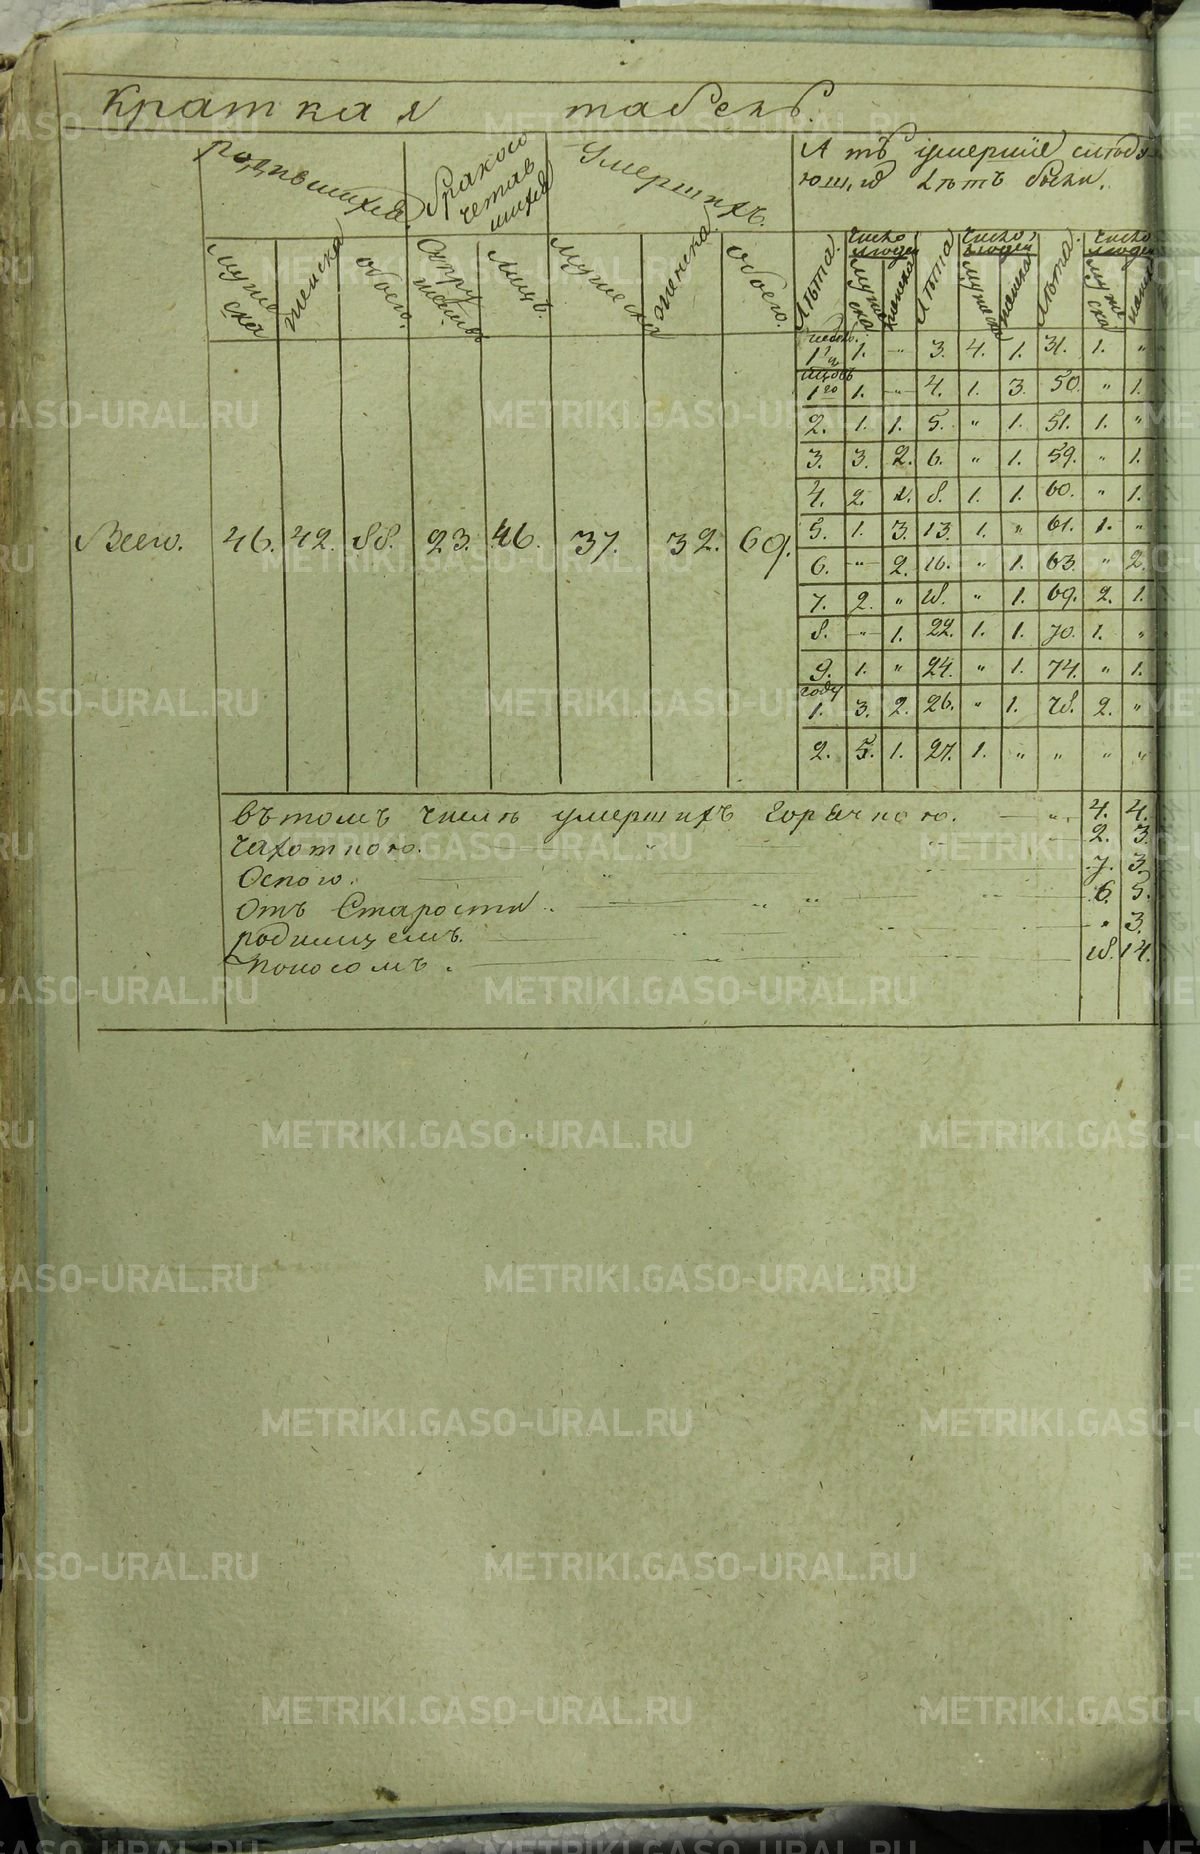 Краткая табель.
родившихся. Бракосочетавшихся Умершихъ. А тѣ умершіе слѣдующихъ лѣтъ были.
мужеска женска обоего. супружествъ лицъ. мужеска женска. обоего. Лѣта. Число людей Лѣта Число людей Лѣта. Число людей
мужеска женска мужеска женска мужеска женска
недель.
1 1. " 3. 4. 1. 31. 1. "
1го 1. " 4. 1. 3. 50. " 1.
2. 1. 1. 5. " 1. 51. 1. "
3. 3. 2. 6. " 1. 59. " 1.
4. 2. 8. 1. 1. 60. " 1.
Всего. 46. 42. 88. 23. 46. 37. 32. 69. 5. 1. 3. 13. 1. " 61. 1. "
6. " 2. 16. " 1. 63. " 2.
7. 2. " 18. " 1. 69. 2. 1.
8. " 1. 22. 1. 1. 70. 1. "
9. 1. " 24. " 1. 74. " 1.
году
1. 3. 2. 26. " 1. 78. 2. "
2. 5. 1. 27. 1. " " " "
въ томъ числѣ умершихъ Горячкою. 4. 4.
Чахоткою. 2. 3.
Оспою. 7. 3.
отъ Старости. 6. 5.
родимцемъ. " 3.
поносомъ. 18. 14.
METRIKI.GASO-URAL.RU